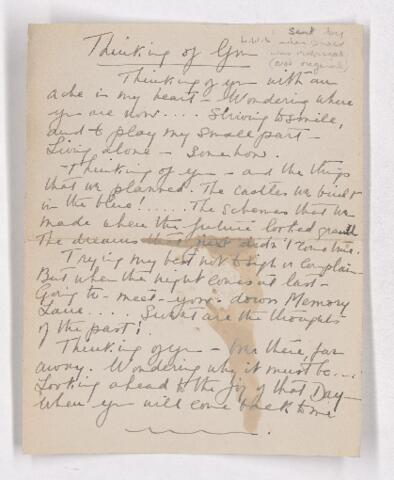 Thinking of You
sent by
L.W.L. when
was
(not required)
Thinking of you with an
ache in my heart - Wondering where
you are now.... Striving to smile,
and to play my small part -
Living alone - Somehow.
Thinking of you - and the things
that we planned. The castles we built
in the blue!..... The schemes that we
made when the future looked grand
The dreams that didn't come true.
Trying my best not to sigh or complain
But when the night comes at last -
Going to - meet - you - down Memory
Lane..... Sweet are the thoughts
of the past!
Thinking of you - over there, far
away. Wondering why it must be...
Looking ahead to the joy of that Day
When you will come back to me